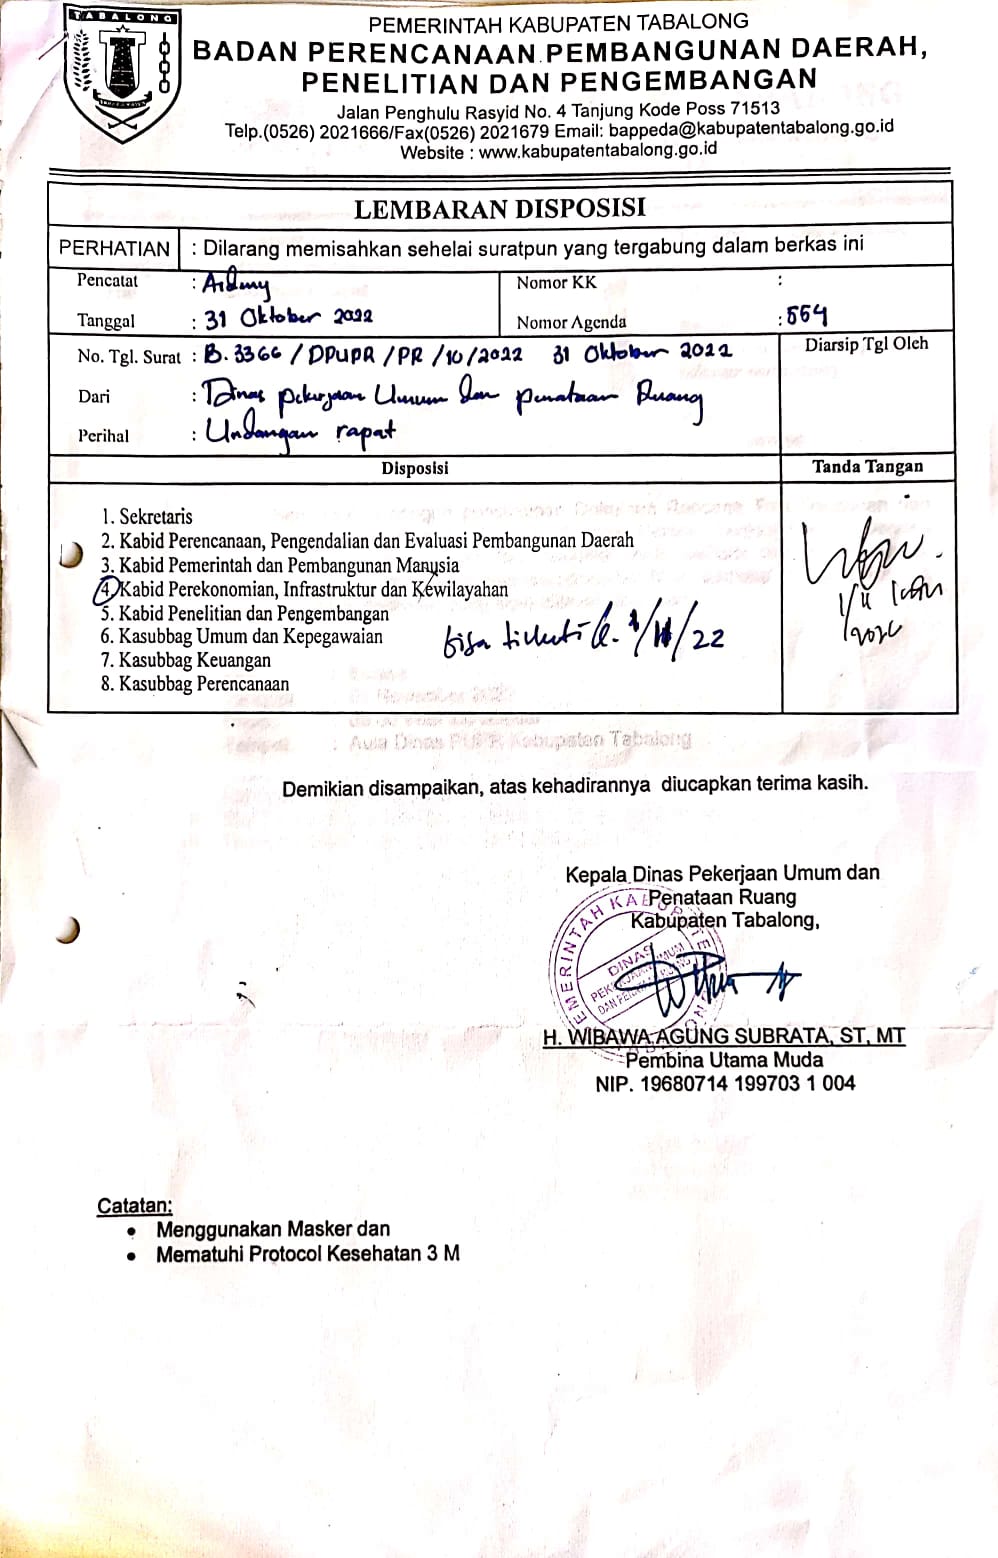 TABALONG
PEMERINTAH KABUPATEN TABALONG
BADAN PERENCANAAN PEMBANGUNAN DAERAH,
PENELITIAN DAN PENGEMBANGAN
Jalan Penghulu Rasyid No. 4 Tanjung Kode Poss 71513
Telp.(0526) 2021666/Fax(0526) 2021679 Email: bappeda@kabupatentabalong.go.id
Website : www.kabupatentabalong.go.id
LEMBARAN DISPOSISI
PERHATIAN : Dilarang memisahkan sehelai suratpun yang tergabung dalam berkas ini
Pencatat :
Nomor KK :
Tanggal : 31 Oktober 2022
Nomor Agenda : 554
No. Tgl. Surat : B.3366/DPUPR/PR/10/2022 31 Oktober 2022
Diarsip Tgl Oleh
Dari : Dinas pekerjaan Umum dan penataan Ruang
Perihal : Undangan rapat
Disposisi
Tanda Tangan
1. Sekretaris
2. Kabid Perencanaan, Pengendalian dan Evaluasi Pembangunan Daerah
3. Kabid Pemerintah dan Pembangunan Manusia
4. Kabid Perekonomian, Infrastruktur dan Kewilayahan
5. Kabid Penelitian dan Pengembangan
6. Kasubbag Umum dan Kepegawaian
7. Kasubbag Keuangan
8. Kasubbag Perencanaan
Aula Dinas PUPR Kabupaten Tabalong
Demikian disampaikan, atas kehadirannya diucapkan terima kasih.
Kepala Dinas Pekerjaan Umum dan
Penataan Ruang
Kabupaten Tabalong,
H. WIBAWA AGUNG SUBRATA, ST, MT
Pembina Utama Muda
NIP. 19680714 199703 1 004
Catatan:
• Menggunakan Masker dan
• Mematuhi Protocol Kesehatan 3 M